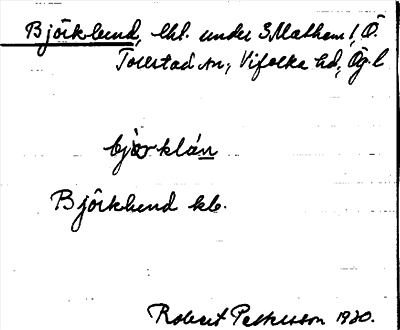 Björklund, lht. under 3 Mathem 1, Ö.
Tollstad sn, Vifolka hd, Ög. l
bjorklán
Björklund kb.
Robert Pettersson 1920.